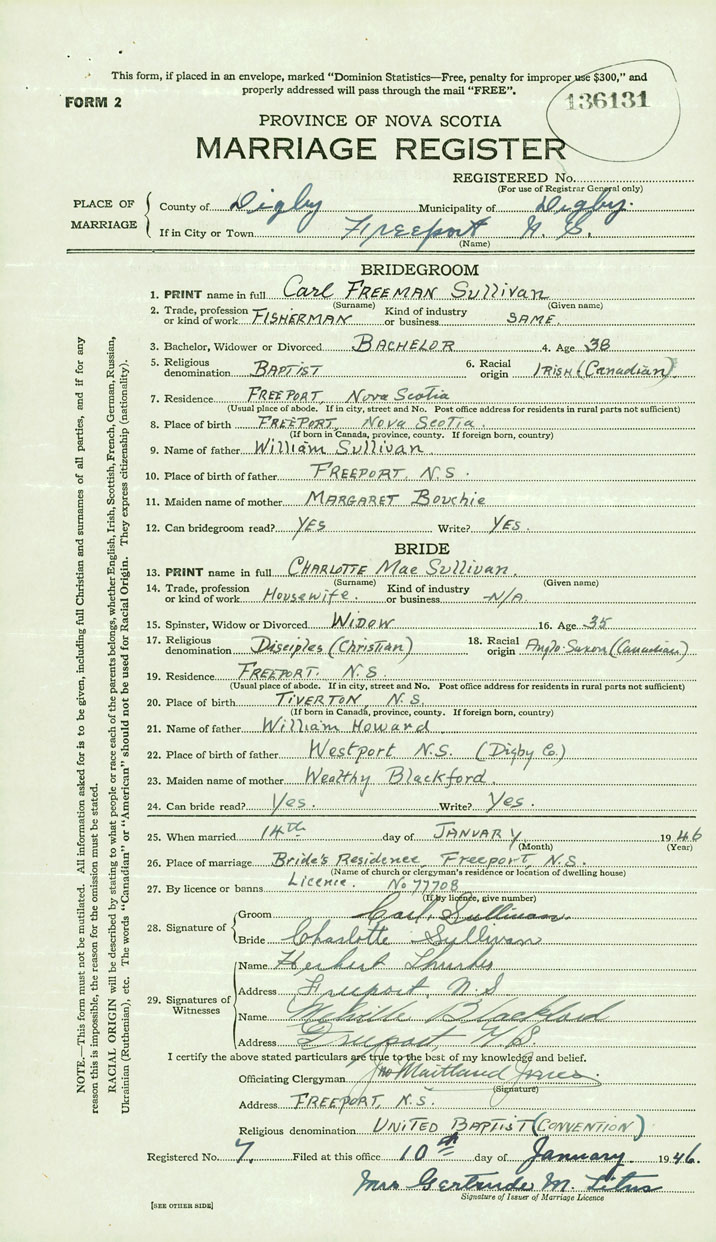 This form, if placed in an envelope, marked “Dominion Statistics—Free, penalty for improper use $300,” and
properly addressed will pass through the mail “FREE”.
FORM 2
136131
PROVINCE OF NOVA SCOTIA
MARRIAGE REGISTER
REGISTERED No.
(For use of Registrar General only)
PLACE OF MARRIAGE
County of Digby Municipality of Digby.
If in City or Town Freeport N. S.
(Name)
BRIDEGROOM
1. PRINT name in full Carl FREEMAN Sullivan
(Surname) (Given name)
2. Trade, profession or kind of work FISHERMAN Kind of industry or business SAME.
3. Bachelor, Widower or Divorced BACHELOR 4. Age 38
5. Religious denomination BAPTIST 6. Racial origin IRISH (Canadian)
7. Residence FREEPORT, Nova Scotia
(Usual place of abode. If in city, street and No. Post office address for residents in rural parts not sufficient)
8. Place of birth FREEPORT, Nova Scotia.
(If born in Canada, province, county. If foreign born, country)
9. Name of father William Sullivan
10. Place of birth of father FREEPORT, N.S.
11. Maiden name of mother MARGARET Bouchie
12. Can bridegroom read? YES Write? YES.
BRIDE
13. PRINT name in full CHARLOTTE Mae Sullivan.
(Surname) (Given name)
14. Trade, profession or kind of work Housewife. Kind of industry or business N/A
15. Spinster, Widow or Divorced WIDOW 16. Age 35
17. Religious denomination Disciples (Christian) 18. Racial origin Anglo-Saxon (Canadian)
19. Residence FREEPORT. N.S.
(Usual place of abode. If in city, street and No. Post office address for residents in rural parts not sufficient)
20. Place of birth TIVERTON, N.S.
(If born in Canada, province, county. If foreign born, country)
21. Name of father William Howard
22. Place of birth of father Westport N.S. (Digby Co.)
23. Maiden name of mother Wealthy Blackford.
24. Can bride read? Yes. Write? Yes.
25. When married 14th day of JANUARY 1946
(Month) (Year)
26. Place of marriage Bride's Residence, Freeport, N.S.
(Name of church or clergyman's residence or location of dwelling house)
27. By licence or banns Licence. No 77708
(If by licence, give number)
28. Signature of
Groom Carl. Sullivan.
Bride Charlotte Sullivan
29. Signatures of Witnesses
Name Herbert Thurber
Address Freeport, N.S
Name Melville Blackford
Address Freeport N.S.
I certify the above stated particulars are true to the best of my knowledge and belief.
Officiating Clergyman Jno Maitland Jones.
(Signature)
Address FREEPORT, N.S.
Religious denomination UNITED BAPTIST (CONVENTION)
Registered No. 7, Filed at this office 10th day of January 1946.
Mrs Gertrude M. Titus
Signature of Issuer of Marriage Licence
[SEE OTHER SIDE]
NOTE.—This form must not be mutilated. All information asked for is to be given, including full Christian and surnames of all parties, and if for any
reason this is impossible, the reason for the omission must be stated.
RACIAL ORIGIN will be described by stating to what people or race each of the parents belongs, whether English, Irish, Scottish, French, German, Russian,
Ukrainian (Ruthenian), etc. The words “Canadian” or “American” should not be used for Racial Origin. They express citizenship (nationality).